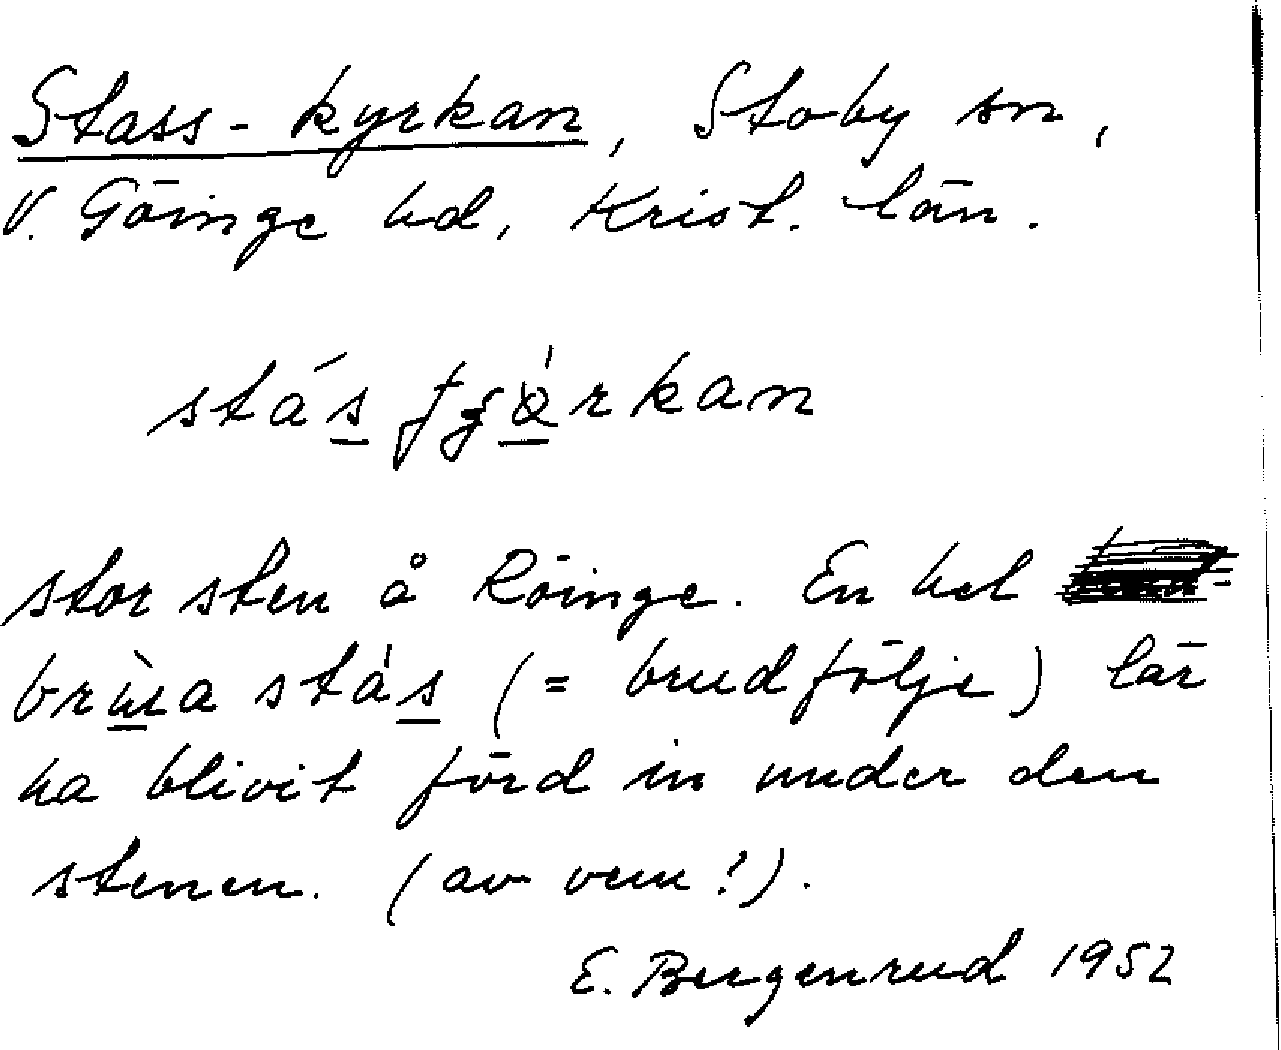 Stass-kyrkan, Stoby sn,
V. Göinge hd, Krist. län.
stás
stor sten å Röinge. En hel
stás (= brudfölje) lär
ha blivit förd in under den
stenen. (av vem?).
E. Bergenrud 1952